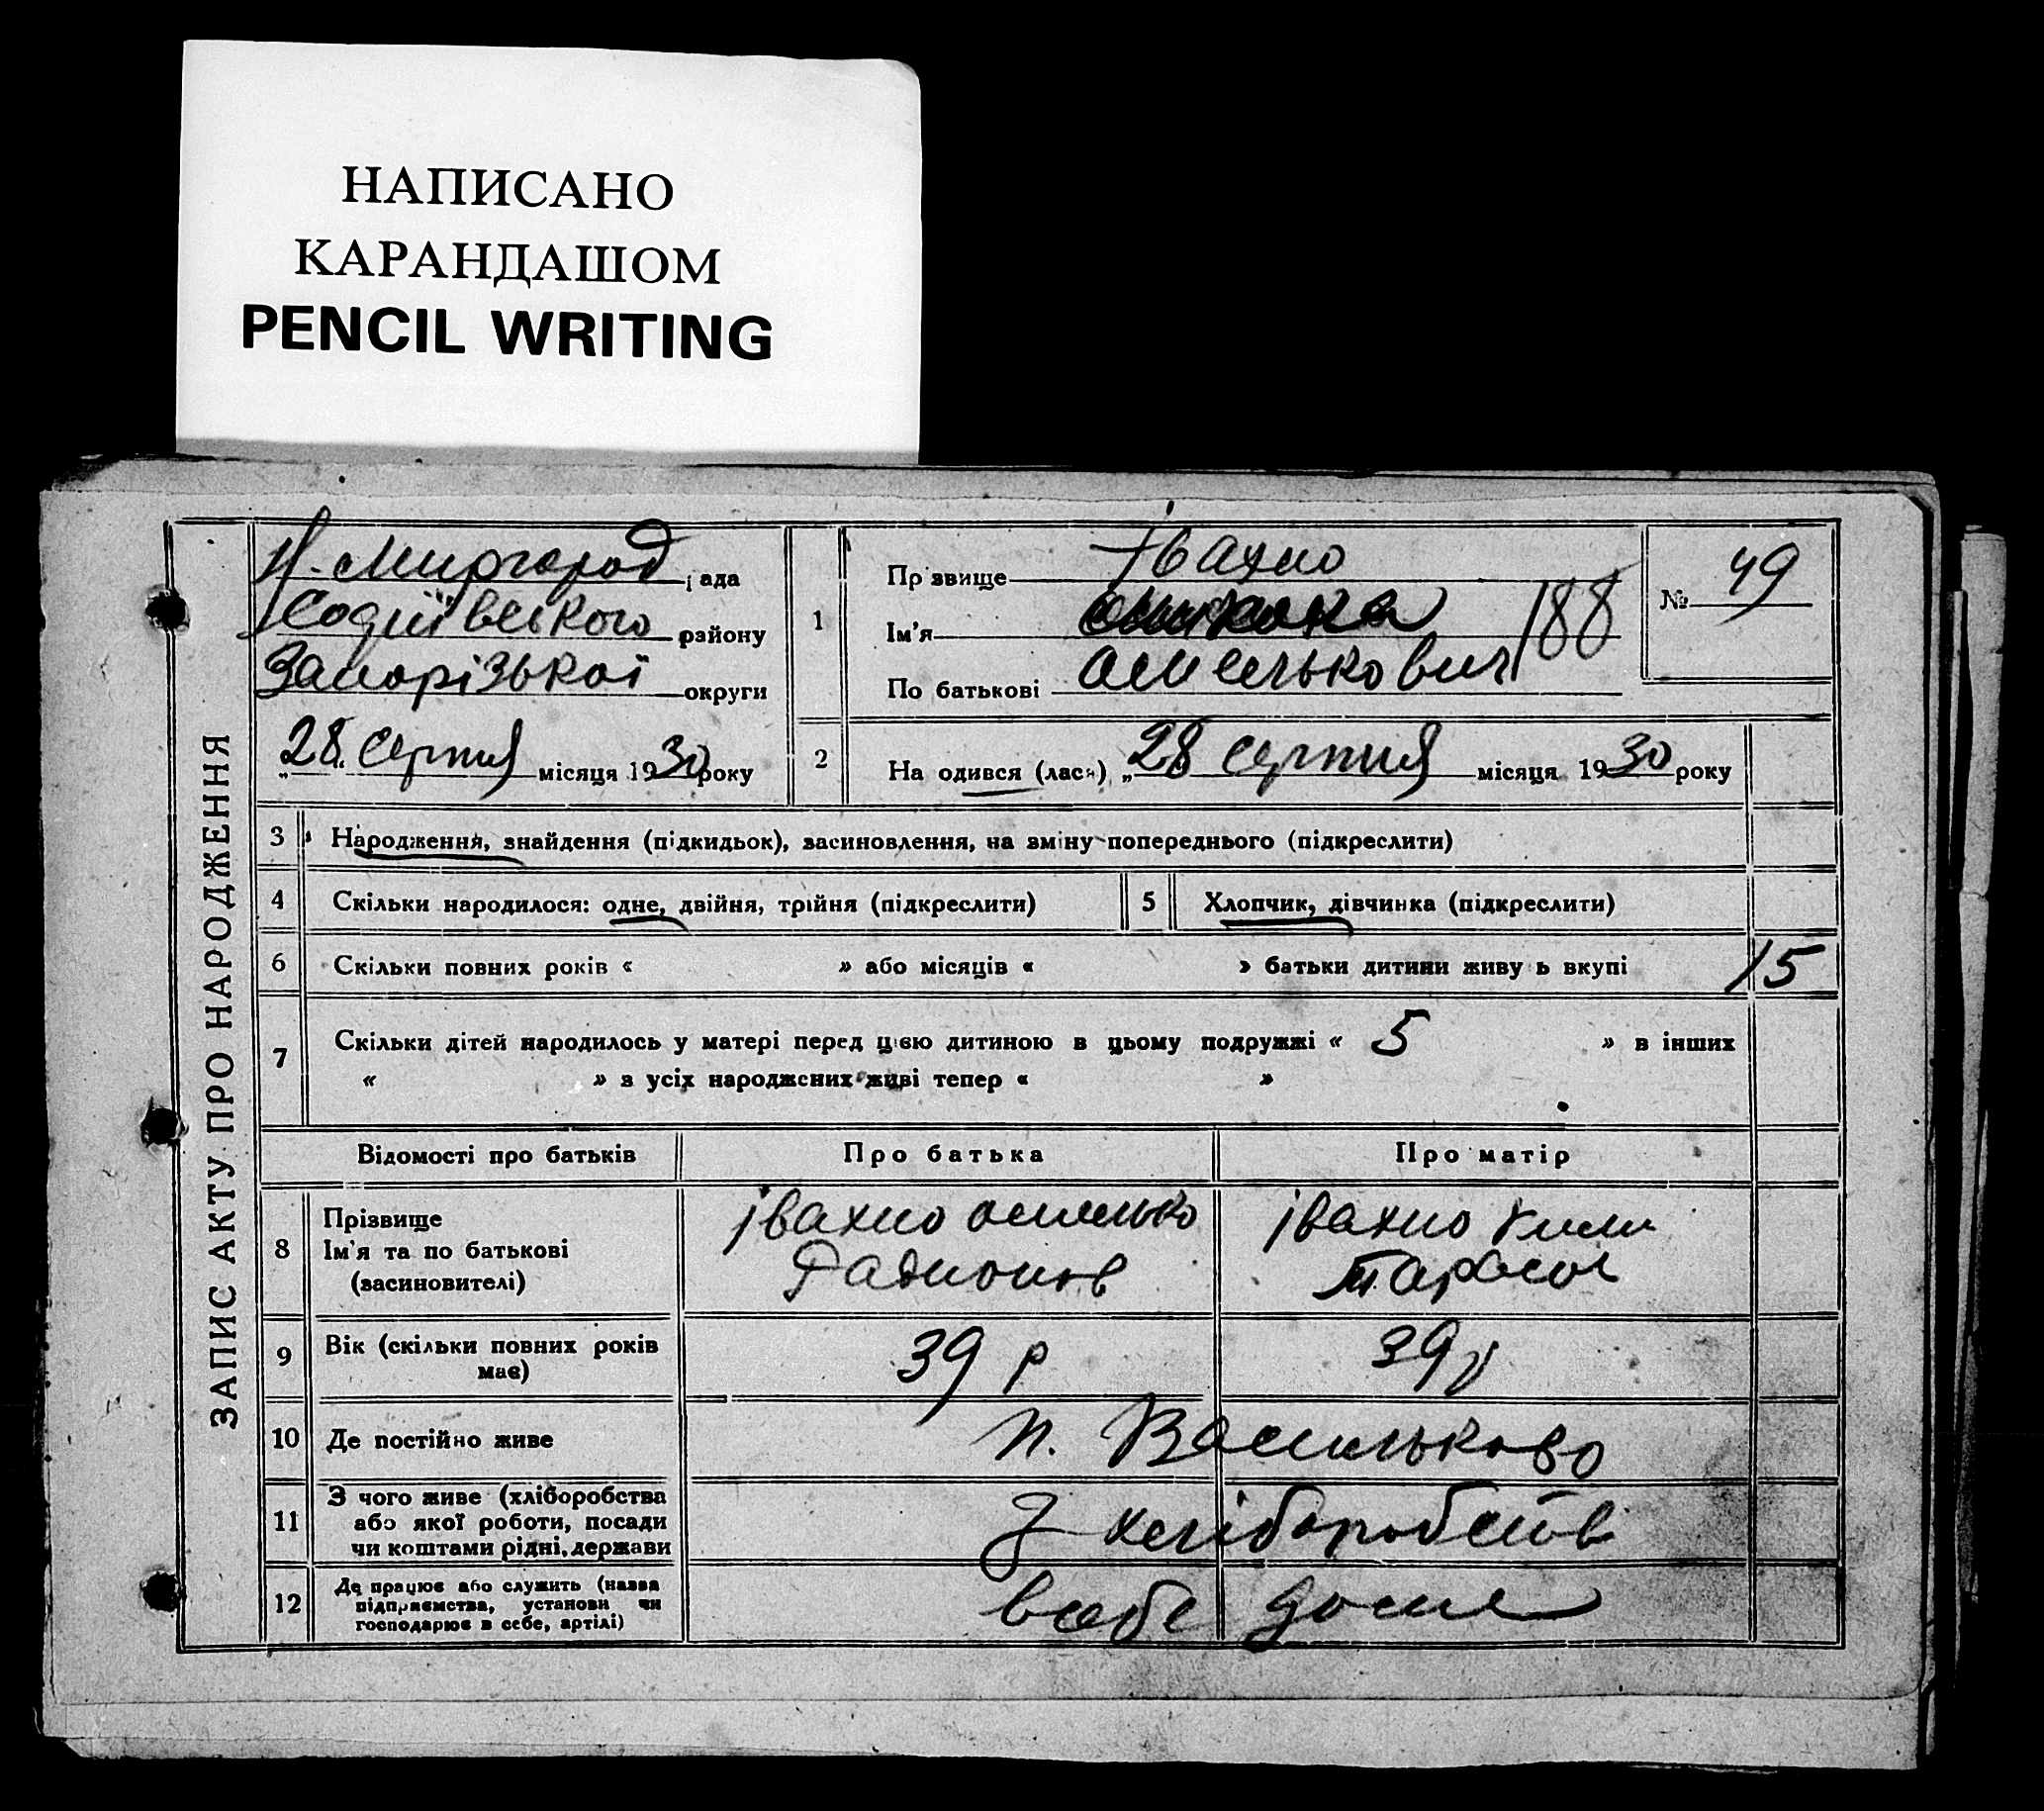 НАПИСАНО
КАРАНДАШОМ
PENCIL WRITING
ЗАПИС АКТУ ПРО НАРОДЖЕННЯ
Н. Миргород ада
району
Запорізької округи
„28“ Серпня місяця 1930 року
1
Пр звище Івахно
Ім'я
По батькові Омельkович 188
№ 49
2 На одився (лася) „28 Серпня місяця 1930 року
3 Народження, знайдення (підкидьок), засиновлення, на зміну попереднього (підкреслити)
4 Скільки народилося: одне, двійня, трійня (підкреслити) 5 Хлопчик, дівчинка (підкреслити)
6 Скільки повних років « » або місяців « » батьки дитини живу ь вкупі 15
7 Скільки дітей народилось у матері перед цією дитиною в цьому подружжі « 5 » в інших
« » з усіх народжених живі тепер « »
Відомості про батьків Про батька Про матір
8 Прізвище
Ім'я та по батькові
(засиновителі)
Івахно Омелько
Радионов
Івахно
Тарасов
9 Вік (скільки повних років має) 39 р 39 р
10 Де постійно живе п. Васильково
11 З чого живе (хліборобства
або якої роботи, посади
чи коштами рідні, держави
З хліборобств
12 Де працює або служить (назва
підприємства, установи чи
господарює в себе, артілі)
в себе дома